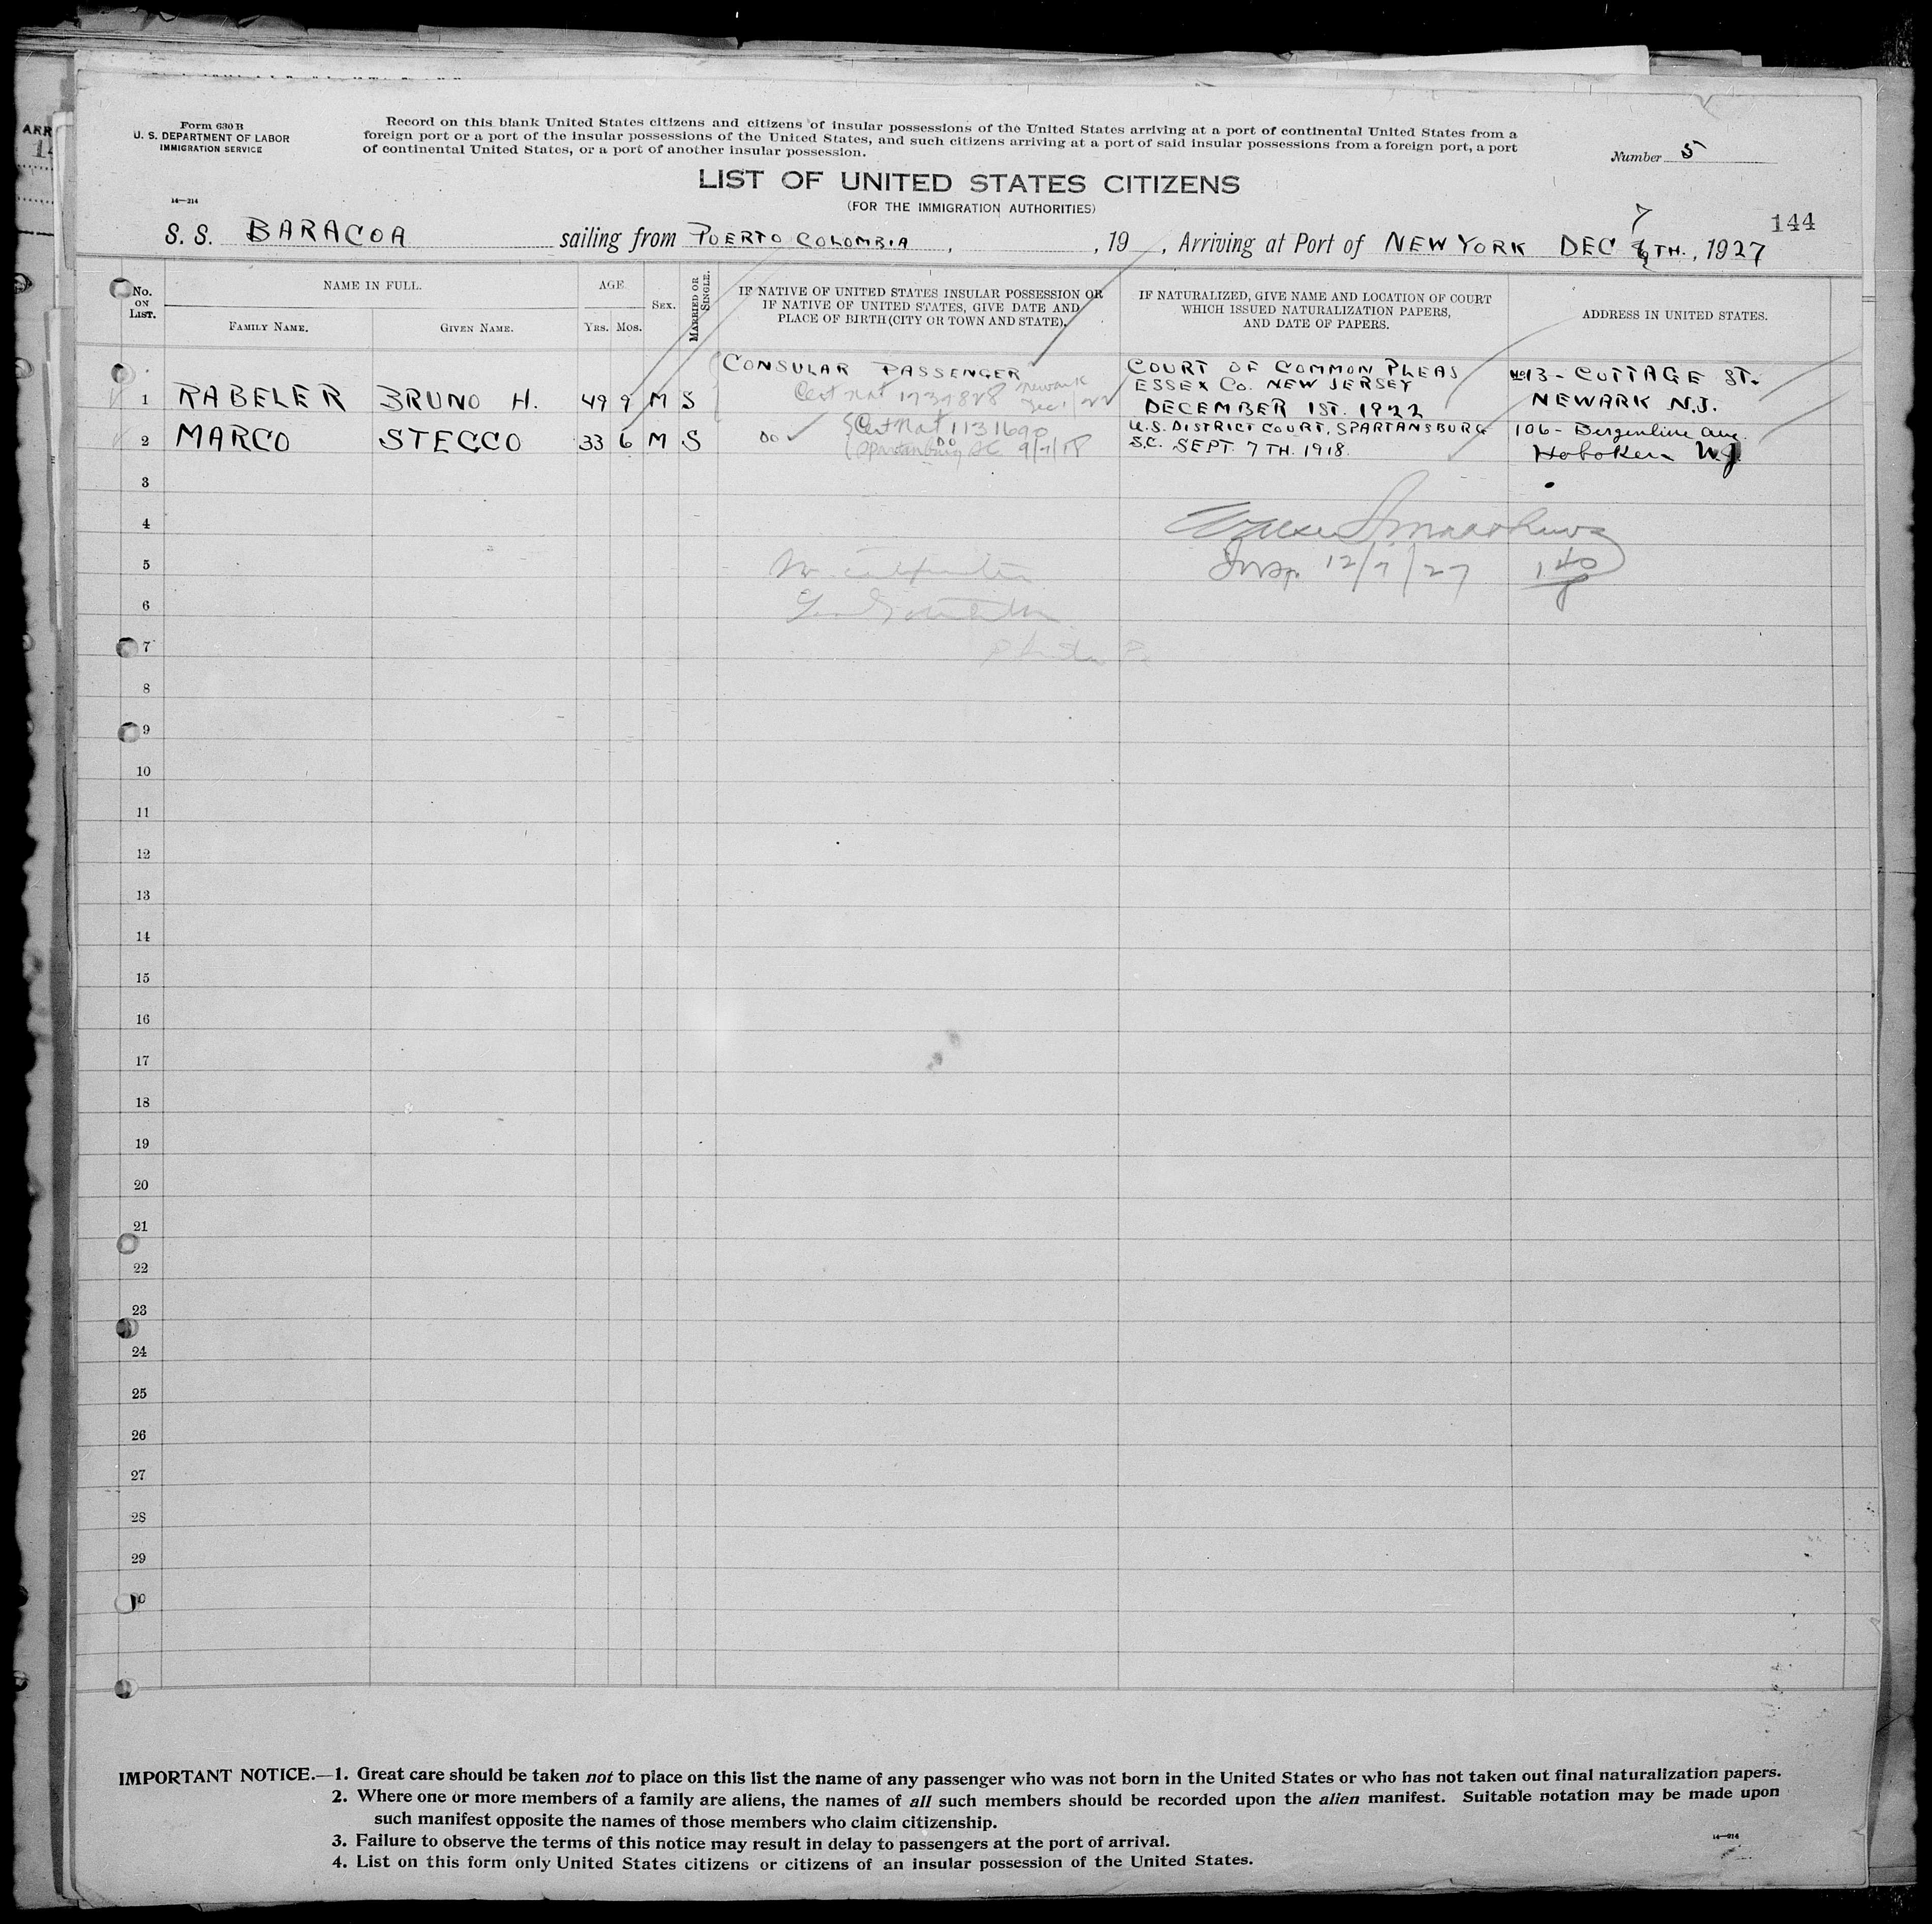 Form 630 B
U. S. DEPARTMENT OF LABOR
IMMIGRATION SERVICE
Record on this blank United States citizens and citizens of insular possessions of the United States arriving at a port of continental United States from a
foreign port or a port of the insular possessions of the United States, and such citizens arriving at a port of said insular possessions from a foreign port, a port
of continental United States, or a port of another insular possession.
Number 5
LIST OF UNITED STATES CITIZENS
(FOR THE IMMIGRATION AUTHORITIES)
14—214
144
S. S. BARACOA sailing from PUERTO COLOMBIA, , 19 , Arriving at Port of NEW YORK DEC 7 TH., 1927
No. ON LIST.
NAME IN FULL.
FAMILY NAME.
GIVEN NAME.
AGE
YRS. MOS.
SEX.
MARRIED OR SINGLE.
IF NATIVE OF UNITED STATES INSULAR POSSESSION OR
IF NATIVE OF UNITED STATES, GIVE DATE AND
PLACE OF BIRTH (CITY OR TOWN AND STATE).
IF NATURALIZED, GIVE NAME AND LOCATION OF COURT
WHICH ISSUED NATURALIZATION PAPERS,
AND DATE OF PAPERS.
ADDRESS IN UNITED STATES.
1 RABELER BRUNO H. 49 9 M S
CONSULAR PASSENGER
Cert Nat 1739828 Newark
Dec 1/22
COURT OF COMMON PLEAS
ESSEX CO. NEW JERSEY
DECEMBER 1ST. 1922
No 13 - COTTAGE ST.
NEWARK N.J.
2 MARCO STECCO 33 6 M S
DO
Cert Nat 1131690
DO
Spartanburg SC 9/7/18
U.S. DISTRICT COURT, SPARTANSBURG
S.C. SEPT. 7TH. 1918.
106 - Bergenline Ave.
Hoboken N.J.
3
4
5
Insp. 12/7/27
6
7
8
9
10
11
12
13
14
15
16
17
18
19
20
21
22
23
24
25
26
27
28
29
IMPORTANT NOTICE.—1. Great care should be taken not to place on this list the name of any passenger who was not born in the United States or who has not taken out final naturalization papers.
2. Where one or more members of a family are aliens, the names of all such members should be recorded upon the alien manifest. Suitable notation may be made upon
such manifest opposite the names of those members who claim citizenship.
3. Failure to observe the terms of this notice may result in delay to passengers at the port of arrival.
4. List on this form only United States citizens or citizens of an insular possession of the United States.
14—214